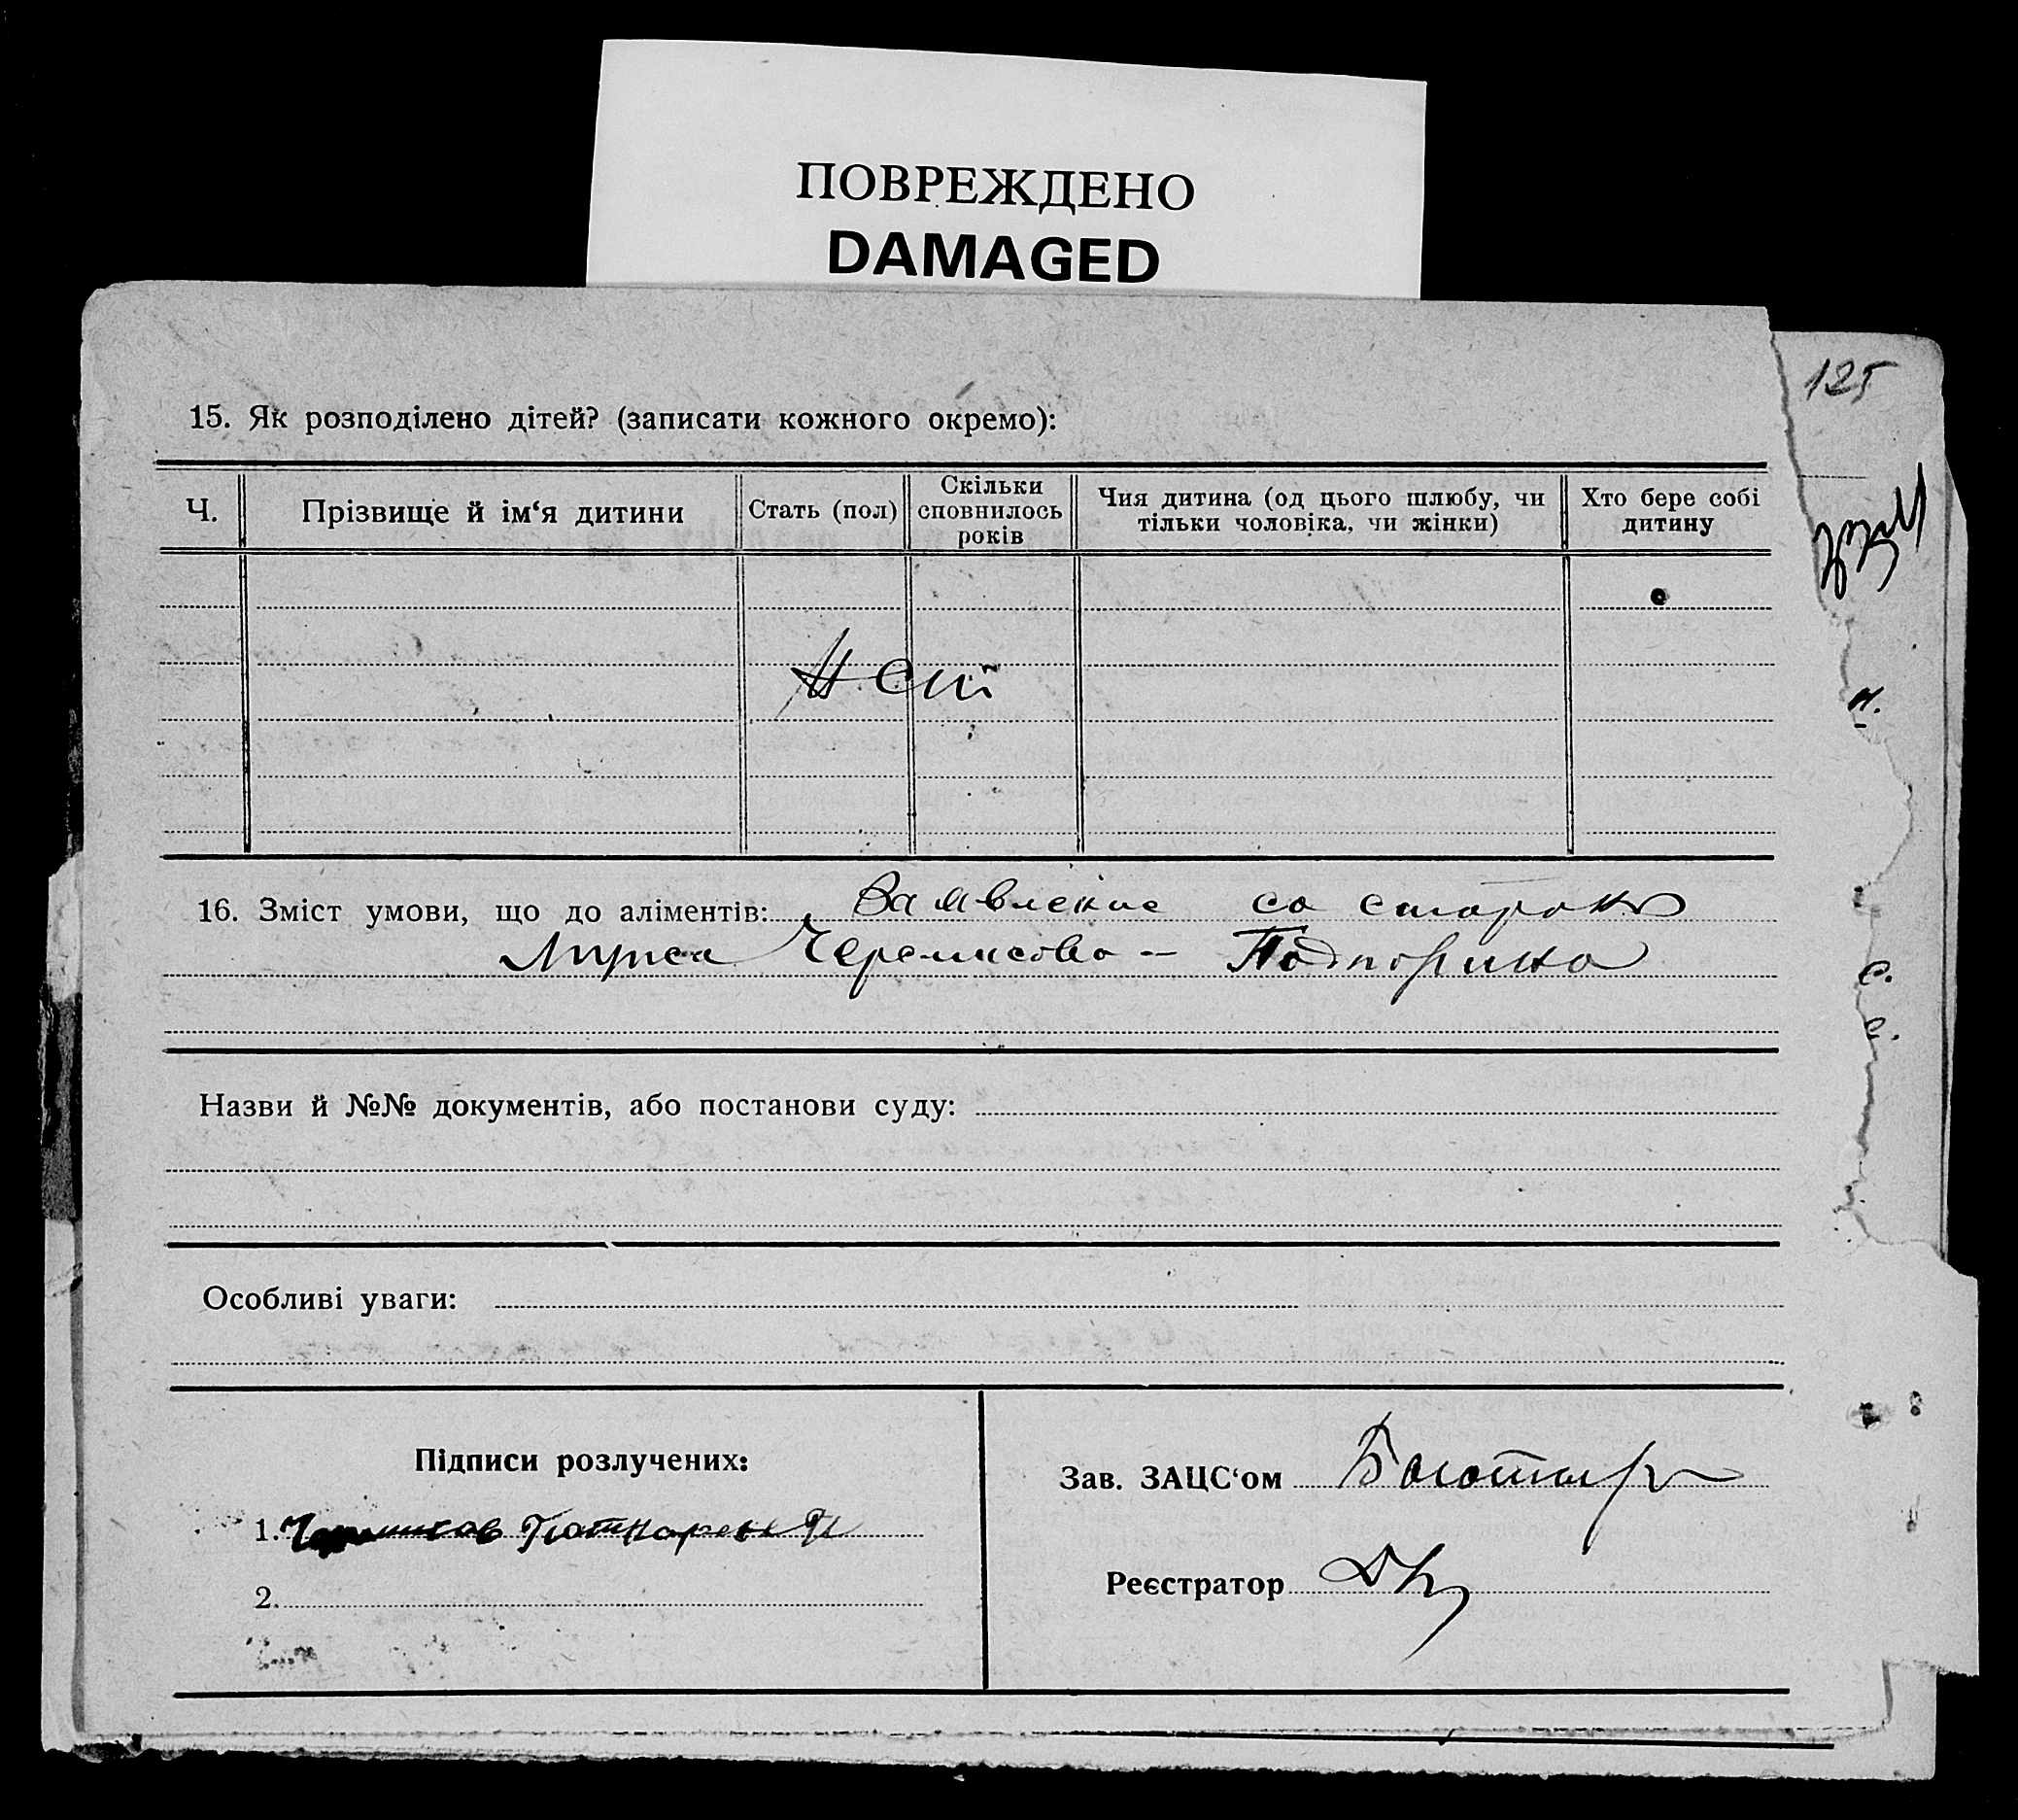 ПОВРЕЖДЕНО
DAMAGED
125
15. Як розподілено дітей? (записати кожного окремо):
Ч.
Прізвище й ім‘я дитини
Стать (пол)
Скільки сповнилось років
Чия дитина (од цього шлюбу, чи тільки чоловіка, чи жінки)
Хто бере собі дитину
Нет
16. Зміст умови, що до аліментів: Заявление со стороны
мужа Черемисова –
Назви й №№ документів, або постанови суду:
Особливі уваги:
Підписи розлучених:
1.
2.
Зав. ЗАЦС‘ом
Реєстратор